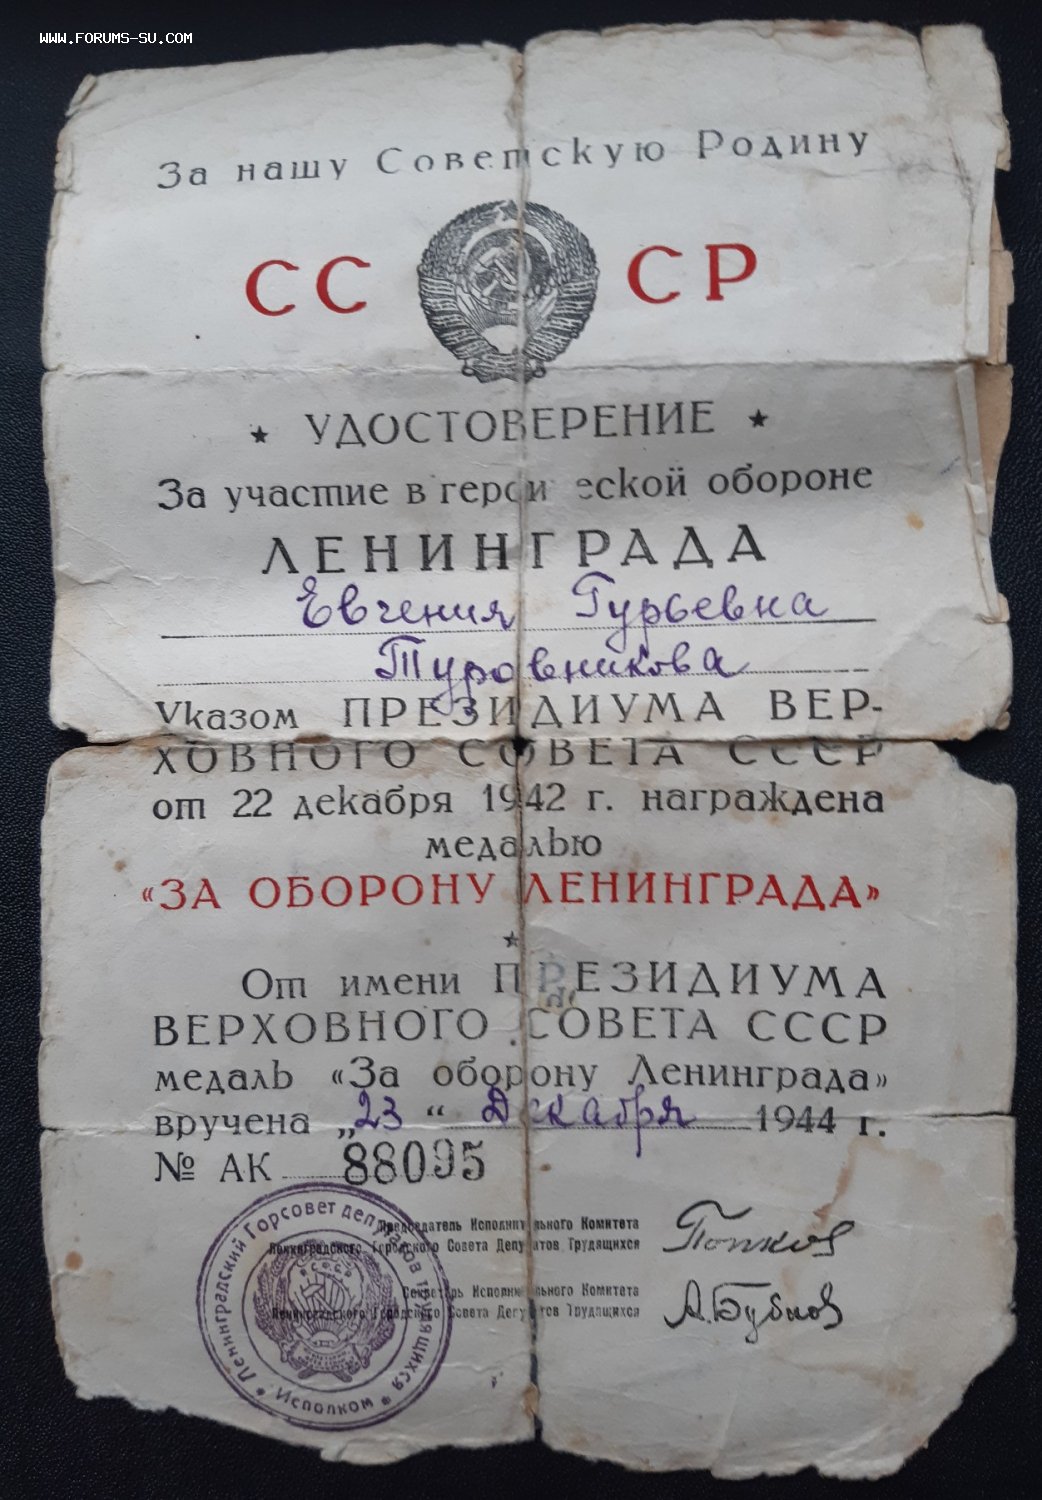 WWW.FORUMS-SU.COM
За нашу Советскую Родину
СССР
★ УДОСТОВЕРЕНИЕ ★
За участие в героической обороне
ЛЕНИНГРАДА
Евгения Гурьевна
Туровникова
Указом ПРЕЗИДИУМА ВЕР-
ХОВНОГО СОВЕТА СССР
от 22 декабря 1942 г. награждена
медалью
«ЗА ОБОРОНУ ЛЕНИНГРАДА»
★
От имени ПРЕЗИДИУМА
ВЕРХОВНОГО СОВЕТА СССР
медаль «За оборону Ленинграда»
вручена „23“ Декабря 1944 г.
№ АК 88095
Председатель Исполнительного Комитета
Ленинградского Городского Совета Депутатов Трудящихся
Попков
Секретарь Исполнительного Комитета
Ленинградского Городского Совета Депутатов Трудящихся
А.Бубнов
Ленинградский Горсовет депутатов трудящихся
Исполком
РСФСР